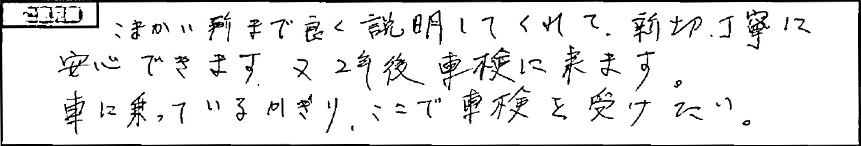 こまかい所まで良く説明してくれて、新切、丁寧に
安心できます。又2年後車検に来ます。
車に乗っているかぎり、ここで車検を受けたい。